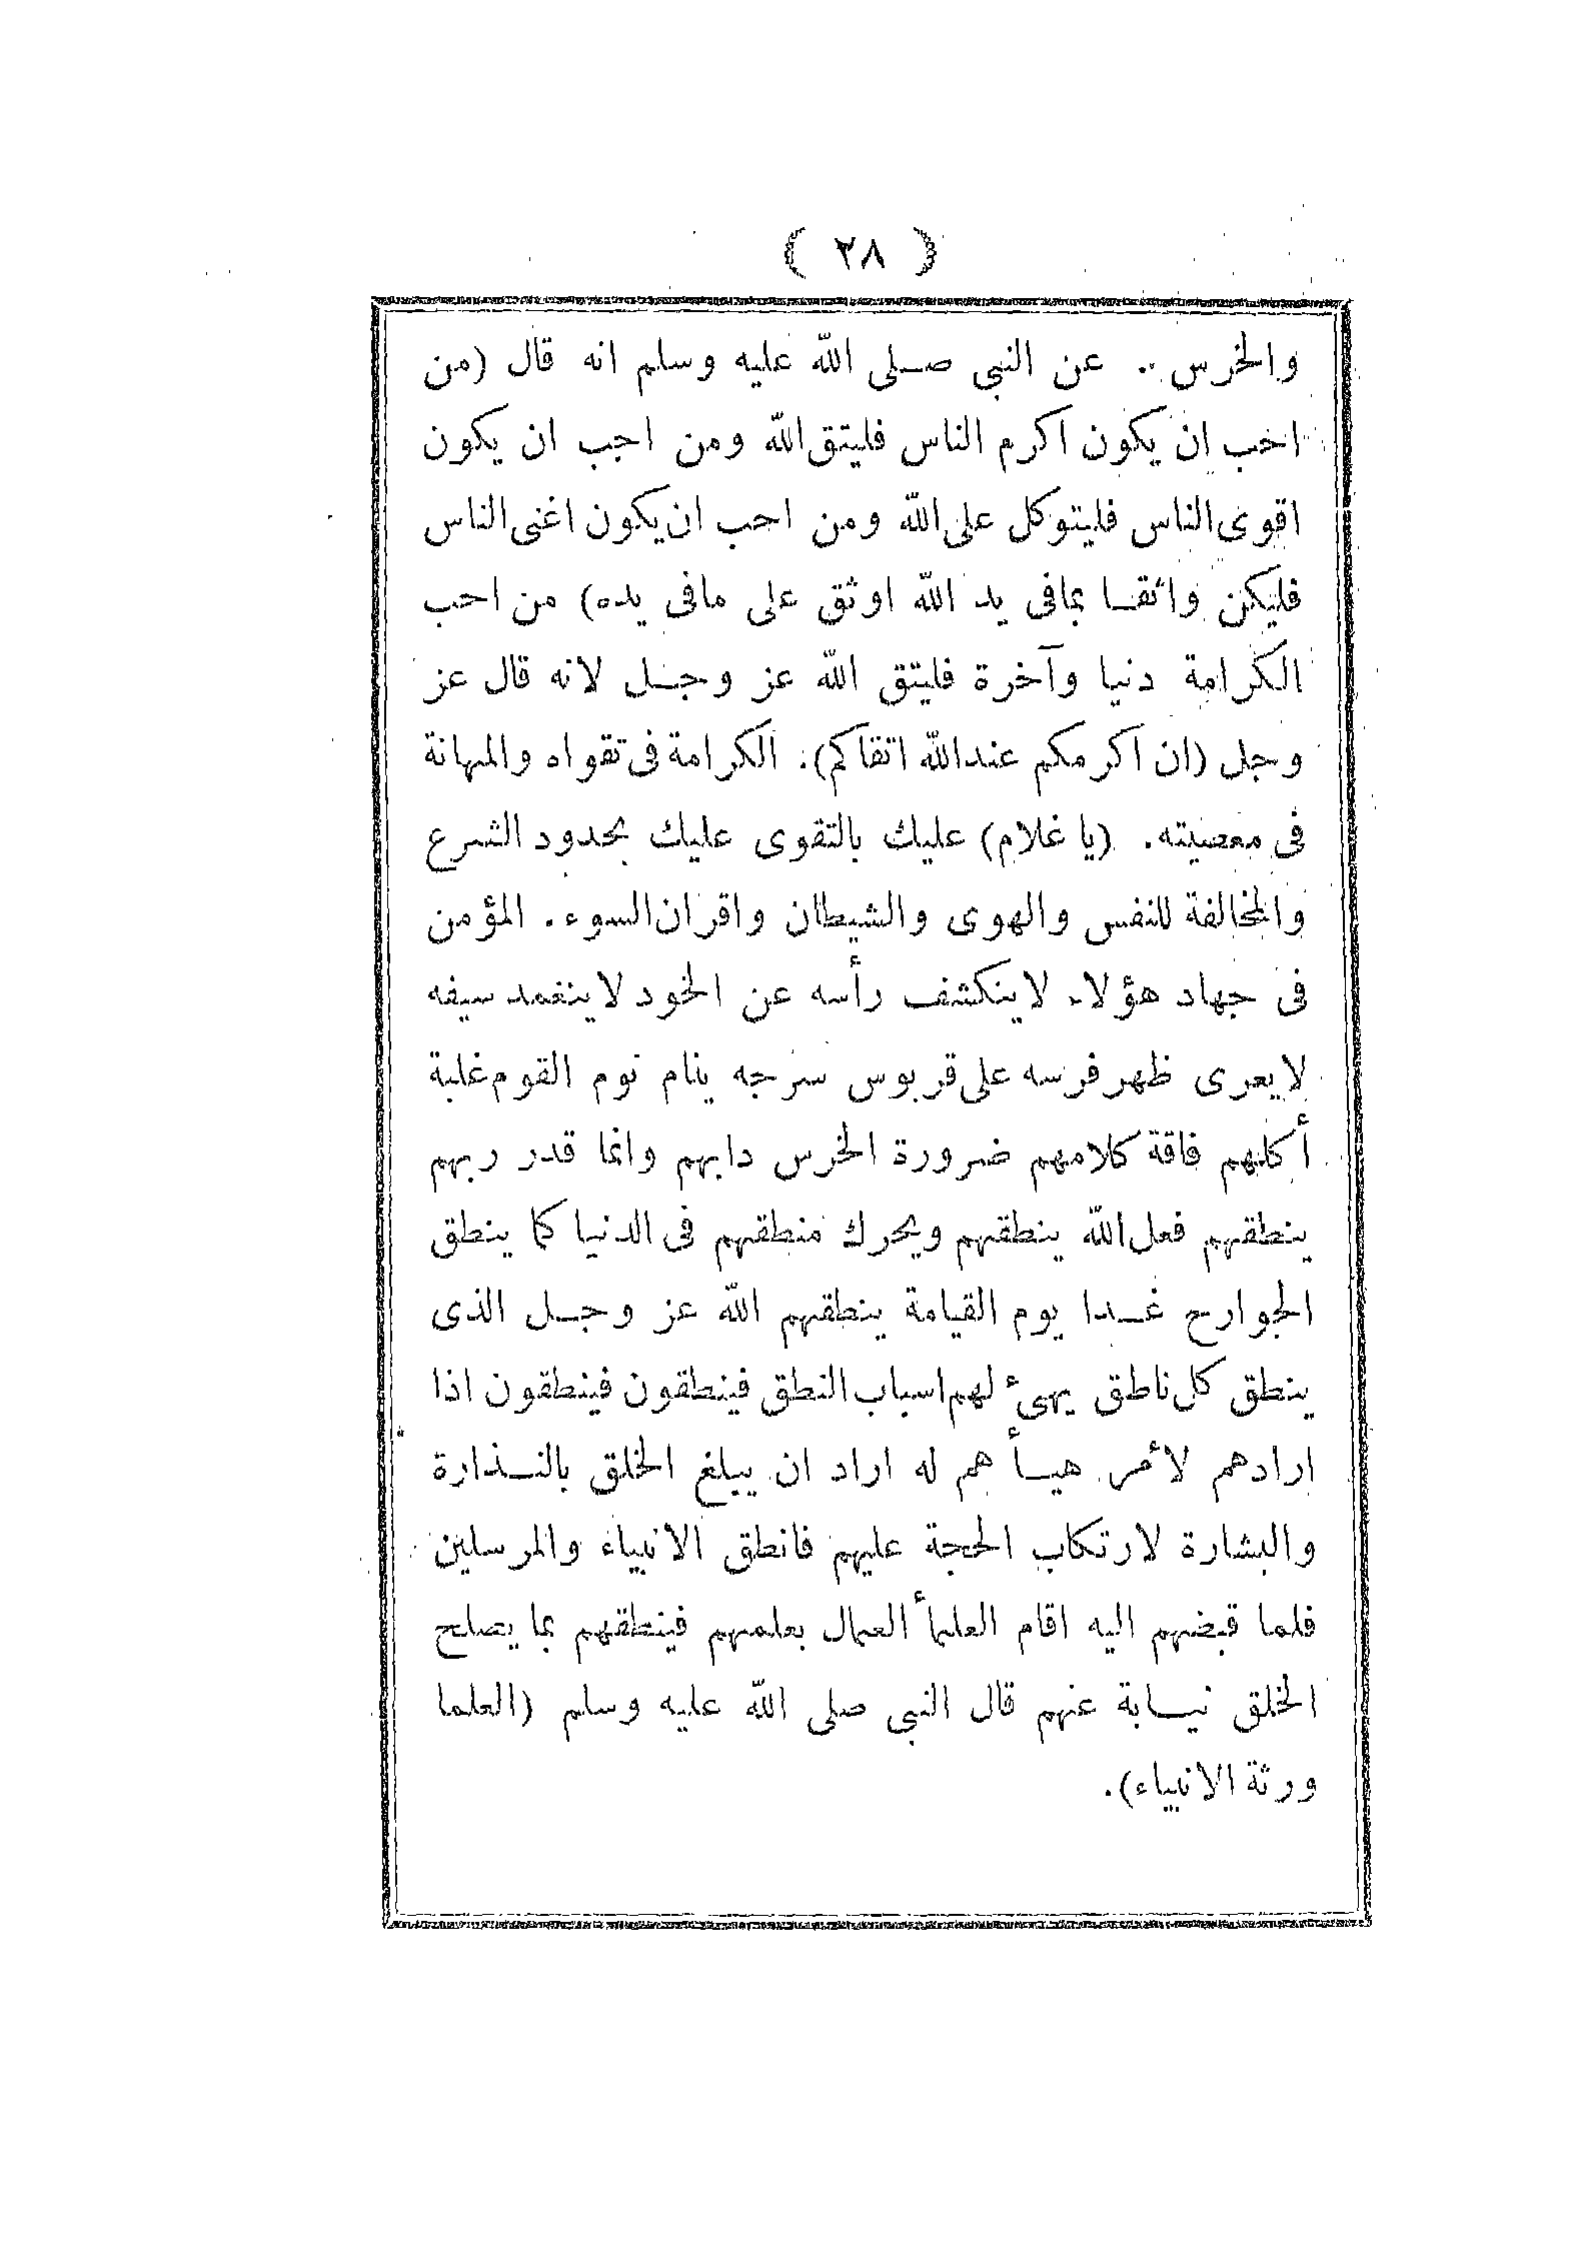 ( ٢٨ )
والخرس .. عن النبى صلى الله عليه وسلم انه قال (من
احب ان يكون اكرم الناس فليتق الله ومن احب ان يكون
اقوى الناس فليتوكل على الله ومن احب ان يكون اغنى الناس
فليكن واثقا بمافى يد الله اوثق على مافى يده) من احب
الكرامة دنيا وآخرة فليتق الله عز وجل لانه قال عز
وجل (ان اكرمكم عندالله اتقاكم). الكرامة فى تقواه والمهانة
فى معصيته. (يا غلام) عليك بالتقوى عليك بحدود الشرع
والمخالفة للنفس والهوى والشيطان واقران السوء. المؤمن
فى جهاد هؤلاء لاينكشف رأسه عن الخود لاينغمد سيفه
لايعرى ظهر فرسه على قربوس سرجه ينام نوم القوم غلبة
أكلهم فاقة كلامهم ضرورة الخرس دابهم وانما قدر ربهم
ينطقهم فعل الله ينطقهم ويحرك منطقهم فى الدنيا كما ينطق
الجوارح غدا يوم القيامة ينطقهم الله عز وجل الذى
ينطق كل ناطق يهىء لهم اسباب النطق فينطقون فينطقون اذا
ارادهم لأمر هيأ هم له اراد ان يبلغ الخلق بالنذارة
والبشارة لارتكاب الحجة عليهم فانطق الانبياء والمرسلين
فلما قبضهم اليه اقام العلمأ العمال بعلمهم فينطقهم بما يصلح
الخلق نيابة عنهم قال النبى صلى الله عليه وسلم (العلما
ورثة الانبياء).